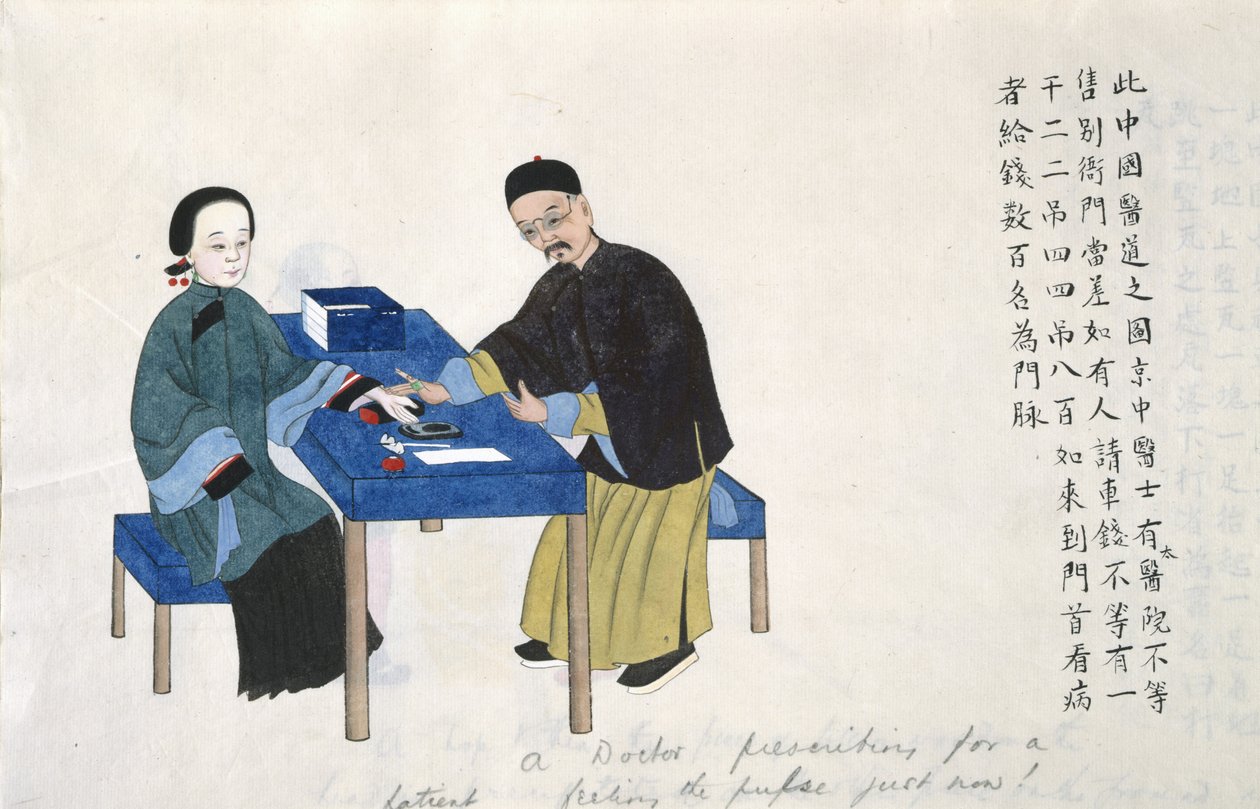 此中國醫道之圖京中醫士有太醫院不等
售別衙門當差如有人請車錢不等有一
千二二吊四四吊八百如來到門首看病
者給錢数百名為門脉
a Doctor prescribing for a
patient feeling the pulse just now!